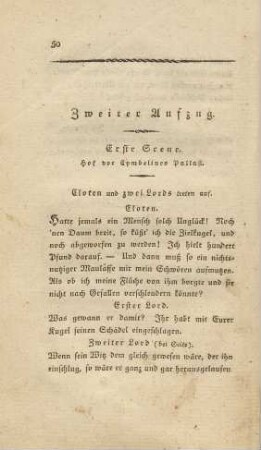 50
Zweiter Aufzug.
Erste Scene.
Hof vor Cymbelines Pallast.
Cloten und zwei Lords treten auf.
Cloten.
Hatte jemals ein Mensch solch Unglück! Noch
'nen Daum breit, so küßt' ich die Zielkugel, und
noch abgeworfen zu werden! Ich hielt hundert
Pfund darauf. — Und dann muß so ein nichts-
nutziger Maulaffe mir mein Schwören aufmutzen.
Als ob ich meine Flüche von ihm borgte und sie
nicht nach Gefallen verschlendern könnte?
Erster Lord.
Was gewann er damit? Ihr habt mit Eurer
Kugel seinen Schädel eingeschlagen.
Zweiter Lord (bei Seite).
Wenn sein Witz dem gleich gewesen wäre, der ihn
einschlug, so wäre er ganz und gar herausgelaufen